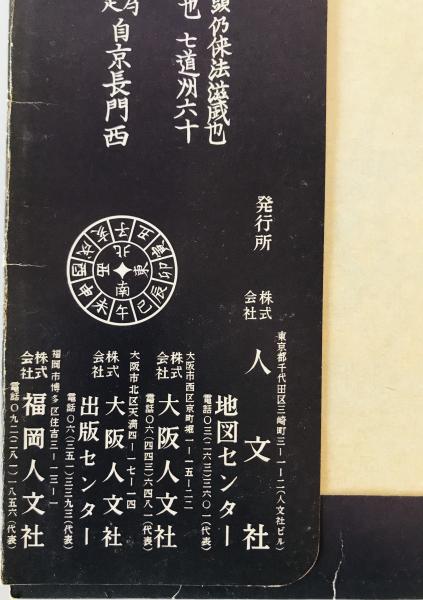 頭仍侠法滋感也
也 七道州六十
自京長門西
発行所
株式会社 人文社
東京都千代田区三崎町三ー一ー二(人文社ビル)
地図センター
電話〇三(二六三)三六〇一(代表)
大阪市西区京町堀一ー一五ー二二
株式会社 大阪人文社
電話〇六(四四三)六四八一(代表)
大阪市北区天満四ー一七ー一四
株式会社 大阪人文社
出版センター
電話〇六(三五一)三三九三(代表)
福岡市博多区住吉三ー一三ー一
株式会社 福岡人文社
電話〇九二(二八一)一八五六(代表)
北
東
南
西
子
丑
寅
卯
辰
巳
午
未
申
酉
戌
亥